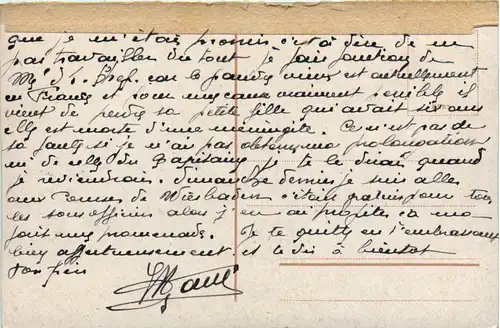 que je m'étais promis c'est à dire de ne
pas travailler du tout je fais fonction de
car le pauvre vieux est actuellement
en France pour une cause vraiment pénible il
vient de perdre sa petite fille qui avait six ans
elle est morte d'une méningite. Ce n'est pas de
sa faute si je n'ai pas obtenu ma prolongation
ni de celle du Capitaine je te le dirai quand
je reviendrai. Dimanche dernier je suis allé
aux courses de Wiesbaden c'était gratuit pour tous
les sous officiers alors j'en ai profité ça m'a
fait une promenade. Je te quitte en t'embrassant
bien affectueusement et te dis à bientôt
Ton